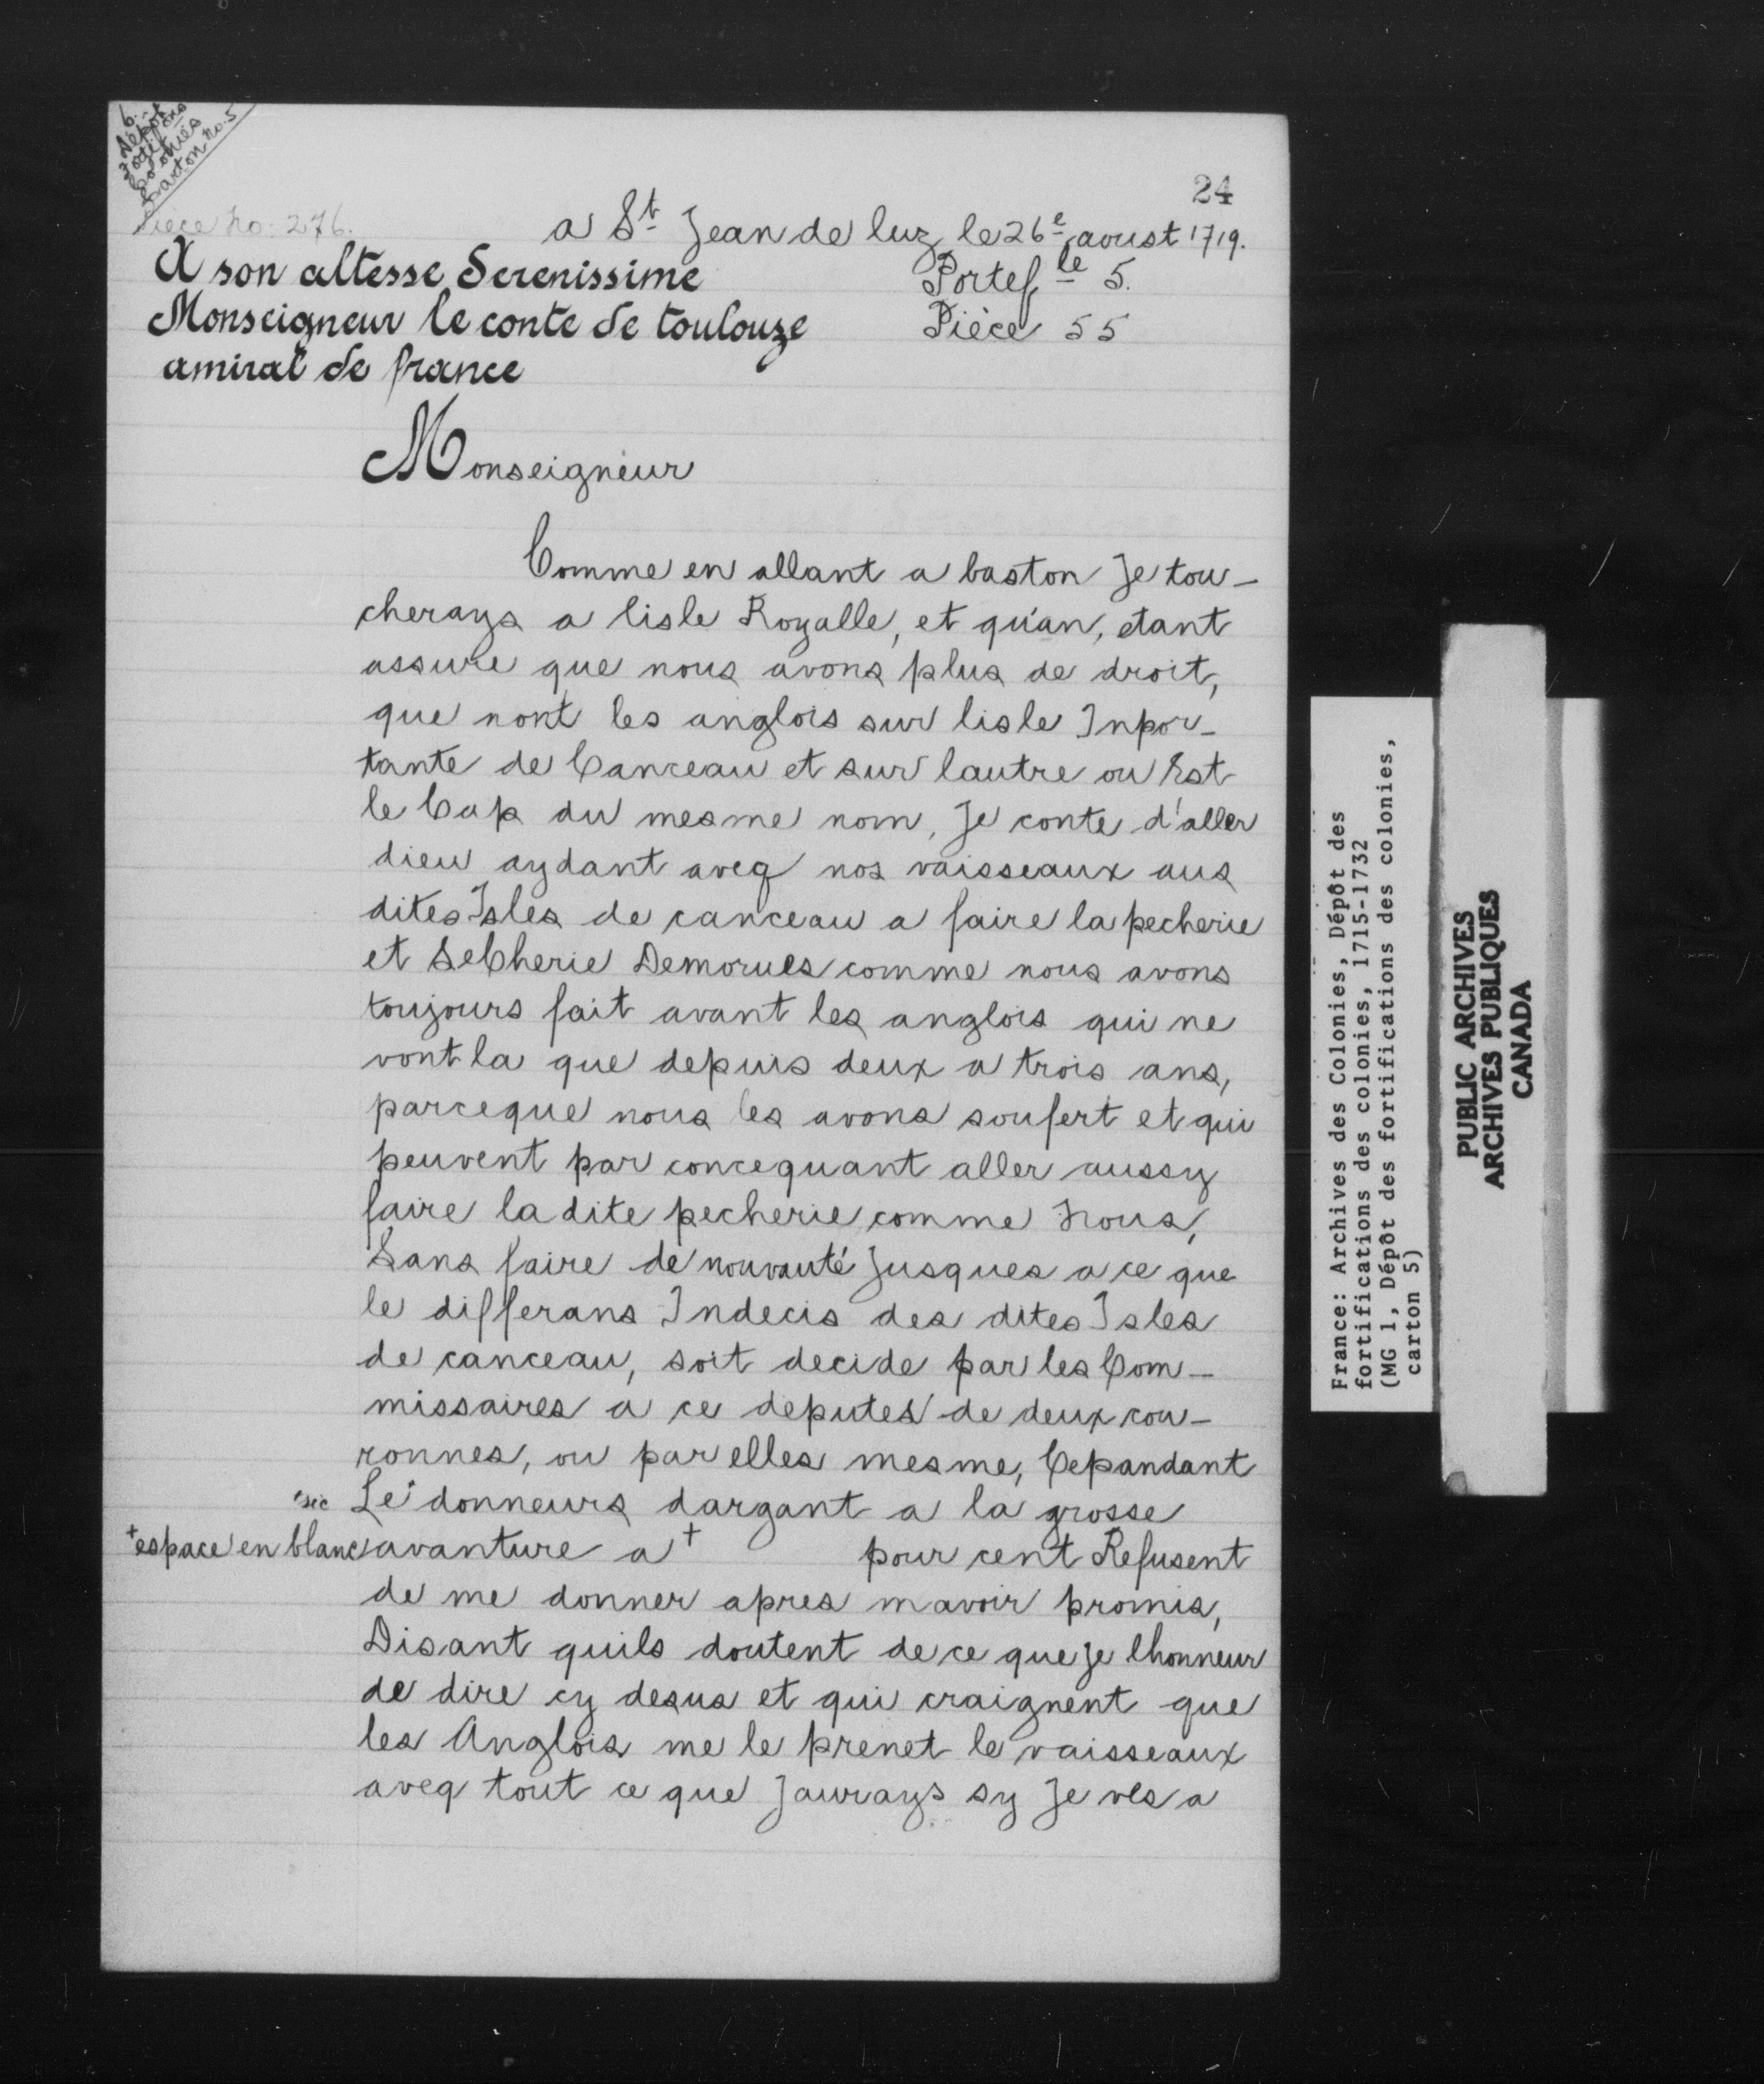 6.
Dépôt
Fortif ons
Colonies
Carton no. 5
Pièce no. 276.
24
a St Jean de luz le 26e aoust 1719.
A son altesse Serenissime
Portef le 5.
Monseigneur le conte de toulouze
Pièce 55
amiral de france
Monseigneur
Comme en allant a baston Je tou-
cherays a lisle Royalle, et qu'an, etant
assure que nous avons plus de droit,
que nont les anglois sur lisle Inpor-
tante de Canceau et sur lautre ou Est
le Cap du mesme nom, Je conte d'aller
dieu aydant aveq nos vaisseaux aus
dites Isles de canceau a faire la pecherie
et SeCherie Demorues comme nous avons
toujours fait avant les anglois qui ne
vont la que depuis deux a trois ans,
parceque nous les avons soufert et qui
peuvent par concequant aller aussy
faire la dite pecherie comme Nous,
Sans faire de nouvauté Jusques a ce que
le differans Indecis des dites Isles
de canceau, soit decide par les Com-
missaires a ce deputes de deux cou-
ronnes, ou par elles mesme, Cepandant
'sic Le' donneurs dargant a la grosse
+espace en blanc avanture a + pour cent Refusent
de me donner apres mavoir promis,
Disant quils doutent de ce que je lhonneur
de dire cy desus et qui craignent que
les Anglois me le prenet le vaisseaux
aveq tout ce que Jaurays sy Je ves a
France: Archives des Colonies, Dépôt des
fortifications des colonies, 1715-1732
(MG 1, Dépôt des fortifications des colonies,
carton 5)
PUBLIC ARCHIVES
ARCHIVES PUBLIQUES
CANADA